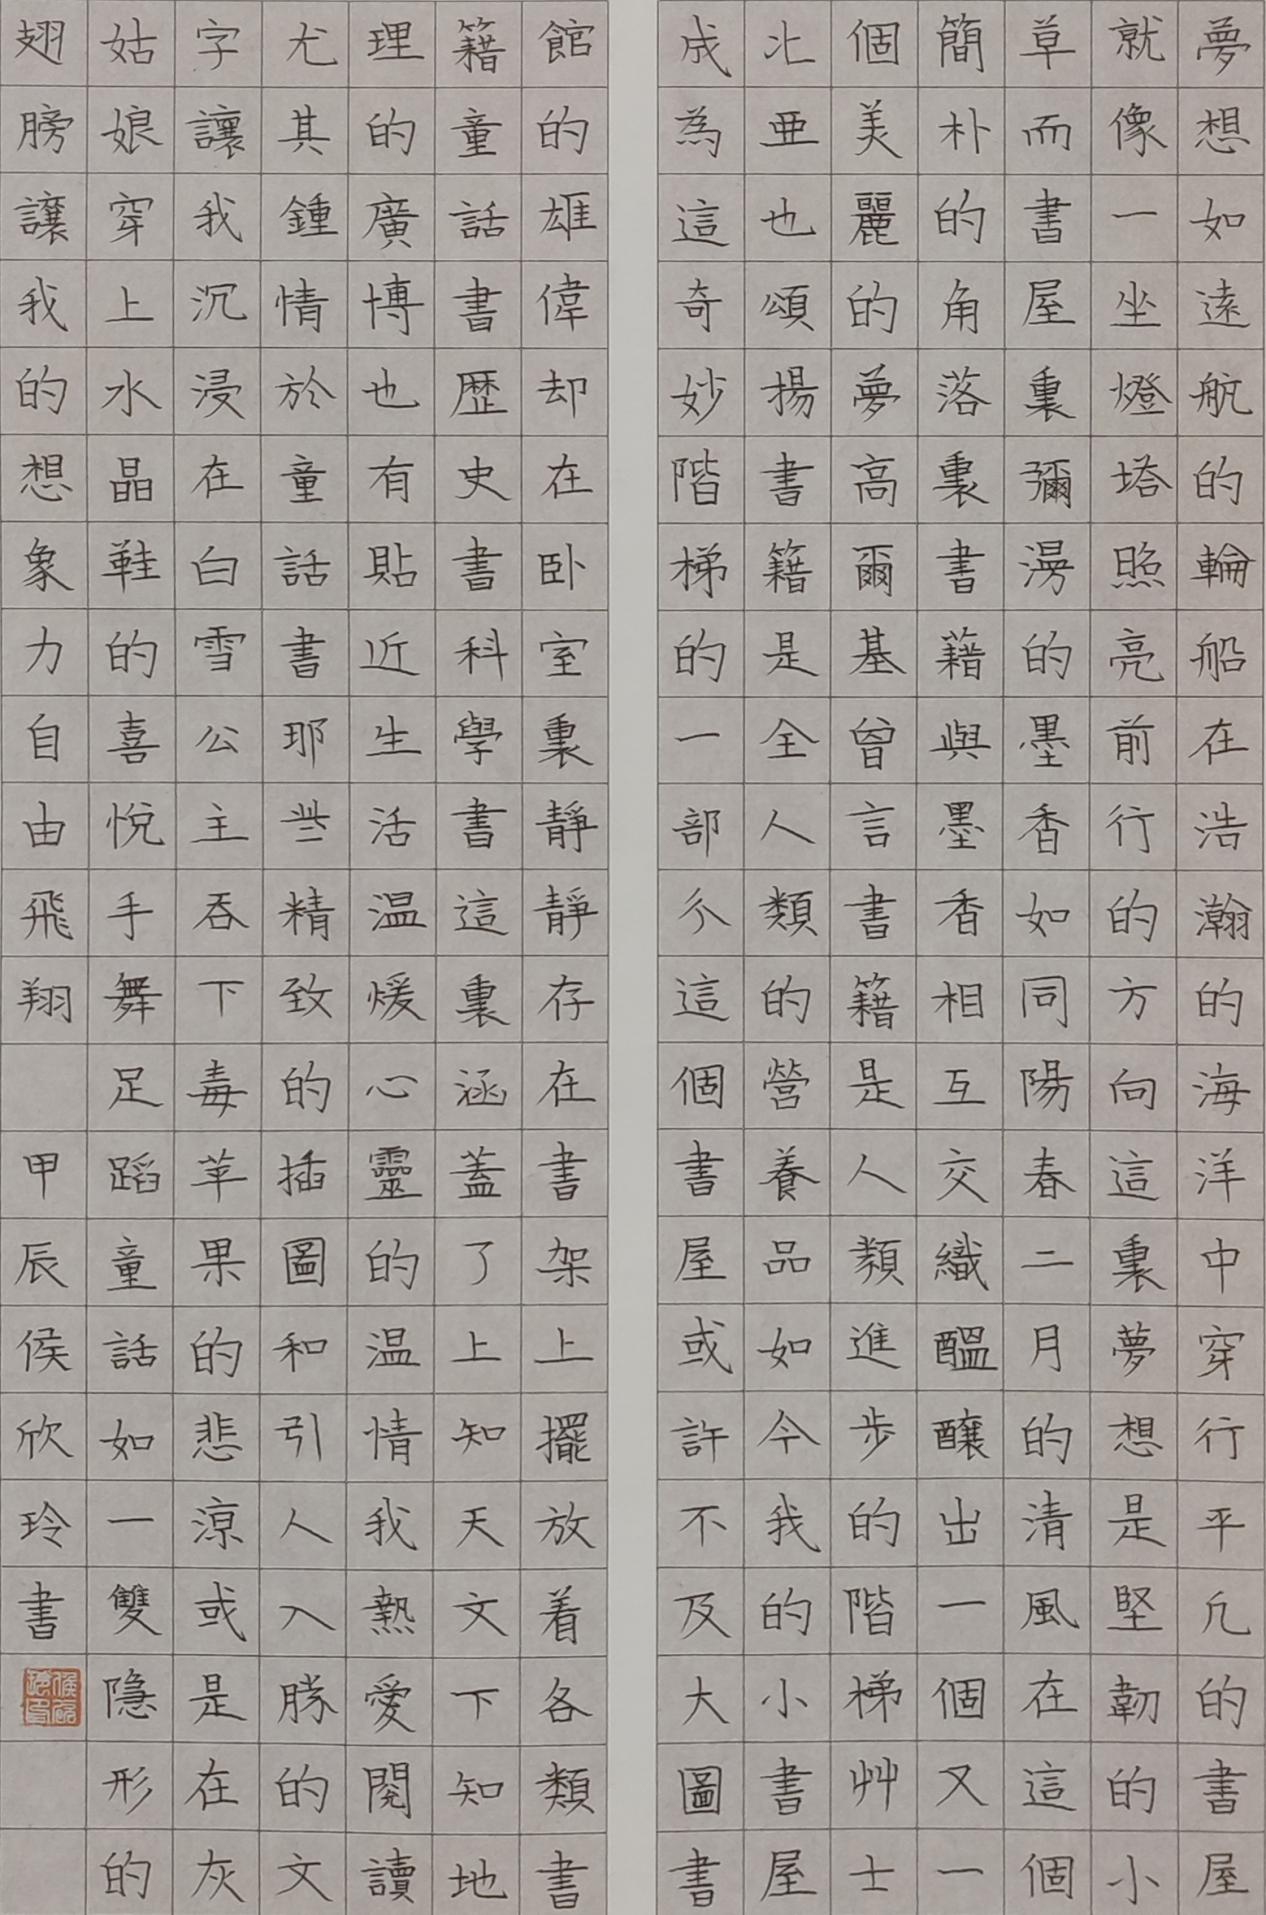 夢想如遠航的輪船在浩瀚的海洋中穿行平凢的書屋
就像一坐燈塔照亮前行的方向這裏夢想是堅韌的小
草而書屋裏彌漫的墨香如同陽春二月的清風在這個
簡朴的角落裏書藉與墨香相互交織醞釀出一個又一
個美麗的夢高爾基曾言書籍是人類進步的階梯艸士
北亜也頌揚書籍是全人類的營養品如今我的小書屋
成為這奇妙階梯的一部分這個書屋或許不及大圖書
館的雄偉却在卧室裏靜靜存在書架上擺放着各類書
籍童話書歷史書科學書這裏涵蓋了上知天文下知地
理的廣博也有貼近生活温煖心靈的温情我熱愛閱讀
尤其鍾情於童話書那些精致的插圖和引人入勝的文
字讓我沉浸在白雪公主吞下毒苹果的悲涼或是在灰
姑娘穿上水晶鞋的喜悅手舞足蹈童話如一雙隱形的
翅膀讓我的想象力自由飛翔 甲辰侯欣玲書